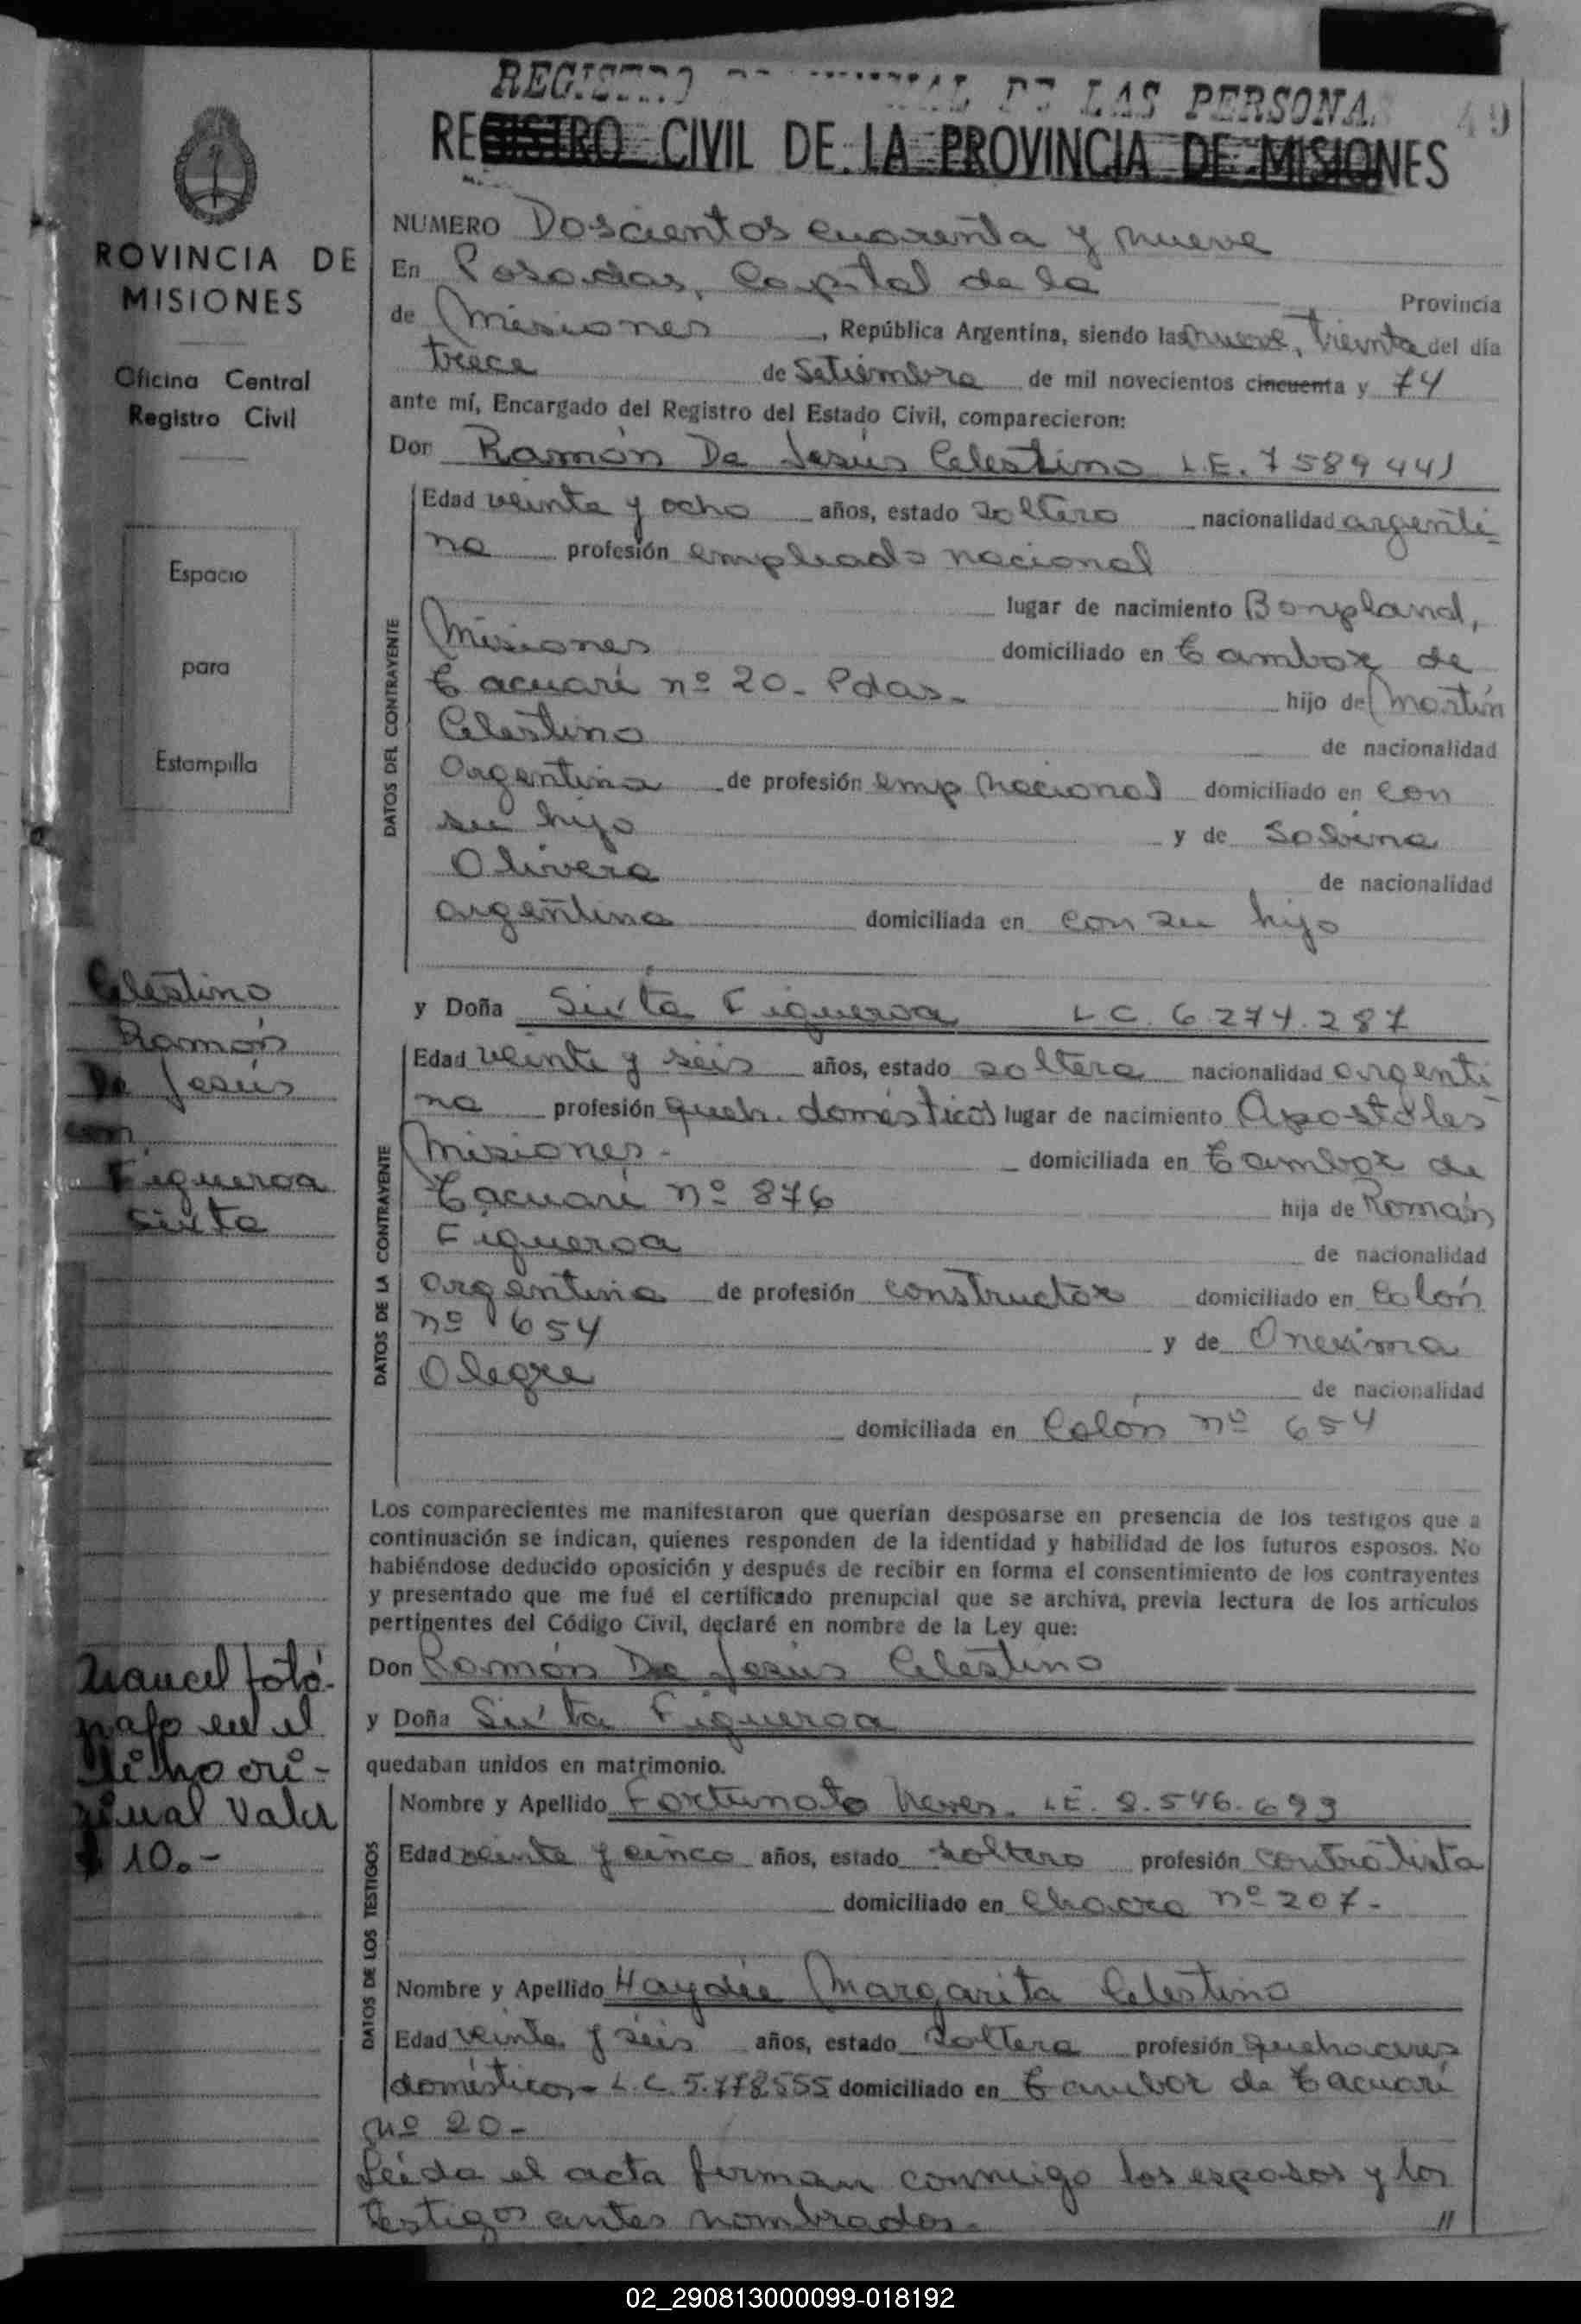 REGISTRO DE LAS PERSONAS
49
REGISTRO CIVIL DE LA PROVINCIA DE MISIONES
PROVINCIA DE
MISIONES
Oficina Central
Registro Civil
Espacio
para
Estampilla
Celestino
Ramón
De Jesús
con
Figueroa
Sixta
Arancel fotó-
grafo en el
libro ori-
ginal Valor
$ 10.-
NUMERO Doscientos cuarenta y nueve
En Posadas, Capital de la Provincia
de Misiones, República Argentina, siendo las nueve, treinta del día
trece de Setiembre de mil novecientos cincuenta y 74
ante mí, Encargado del Registro del Estado Civil, comparecieron:
Don Ramón De Jesús Celestino L.E. 7589441
DATOS DEL CONTRAYENTE
Edad veinte y ocho años, estado soltero nacionalidad argenti-
na profesión empleado nacional
lugar de nacimiento Bonpland,
Misiones domiciliado en Tambor de
Tacuarí nº 20.- Pdas.- hijo de Martín
Celestino de nacionalidad
Argentina de profesión emp nacional domiciliado en con
su hijo y de Sabina
Olivera de nacionalidad
argentina domiciliada en con su hijo
y Doña Sixta Figueroa L C. 6.274.287
DATOS DE LA CONTRAYENTE
Edad veinte y séis años, estado soltera nacionalidad argenti-
na profesión queh. domésticos lugar de nacimiento Apostóles
Misiones.- domiciliada en Tambor de
Tacuarí nº 876 hija de Román
Figueroa de nacionalidad
argentina de profesión constructor domiciliado en Colón
nº 654 y de Onexima
Alegre de nacionalidad
domiciliada en Colón nº 654
Los comparecientes me manifestaron que querían desposarse en presencia de los testigos que a
continuación se indican, quienes responden de la identidad y habilidad de los futuros esposos. No
habiéndose deducido oposición y después de recibir en forma el consentimiento de los contrayentes
y presentado que me fué el certificado prenupcial que se archiva, previa lectura de los artículos
pertinentes del Código Civil, declaré en nombre de la Ley que:
Don Ramón De Jesús Celestino
y Doña Sixta Figueroa
quedaban unidos en matrimonio.
DATOS DE LOS TESTIGOS
Nombre y Apellido Fortunato Neves. L E. 8.546.693
Edad veinte y cinco años, estado soltero profesión contratista
domiciliado en Chacra nº 207.-
Nombre y Apellido Haydée Margarita Celestino
Edad veinte y séis años, estado soltera profesión quehaceres
domésticos- L.C 5.778555 domiciliado en Tambor de Tacuarí
Nº 20-
Leída el acta firman conmigo los esposos y los
testigos antes nombrados.- //
02_290813000099-018192